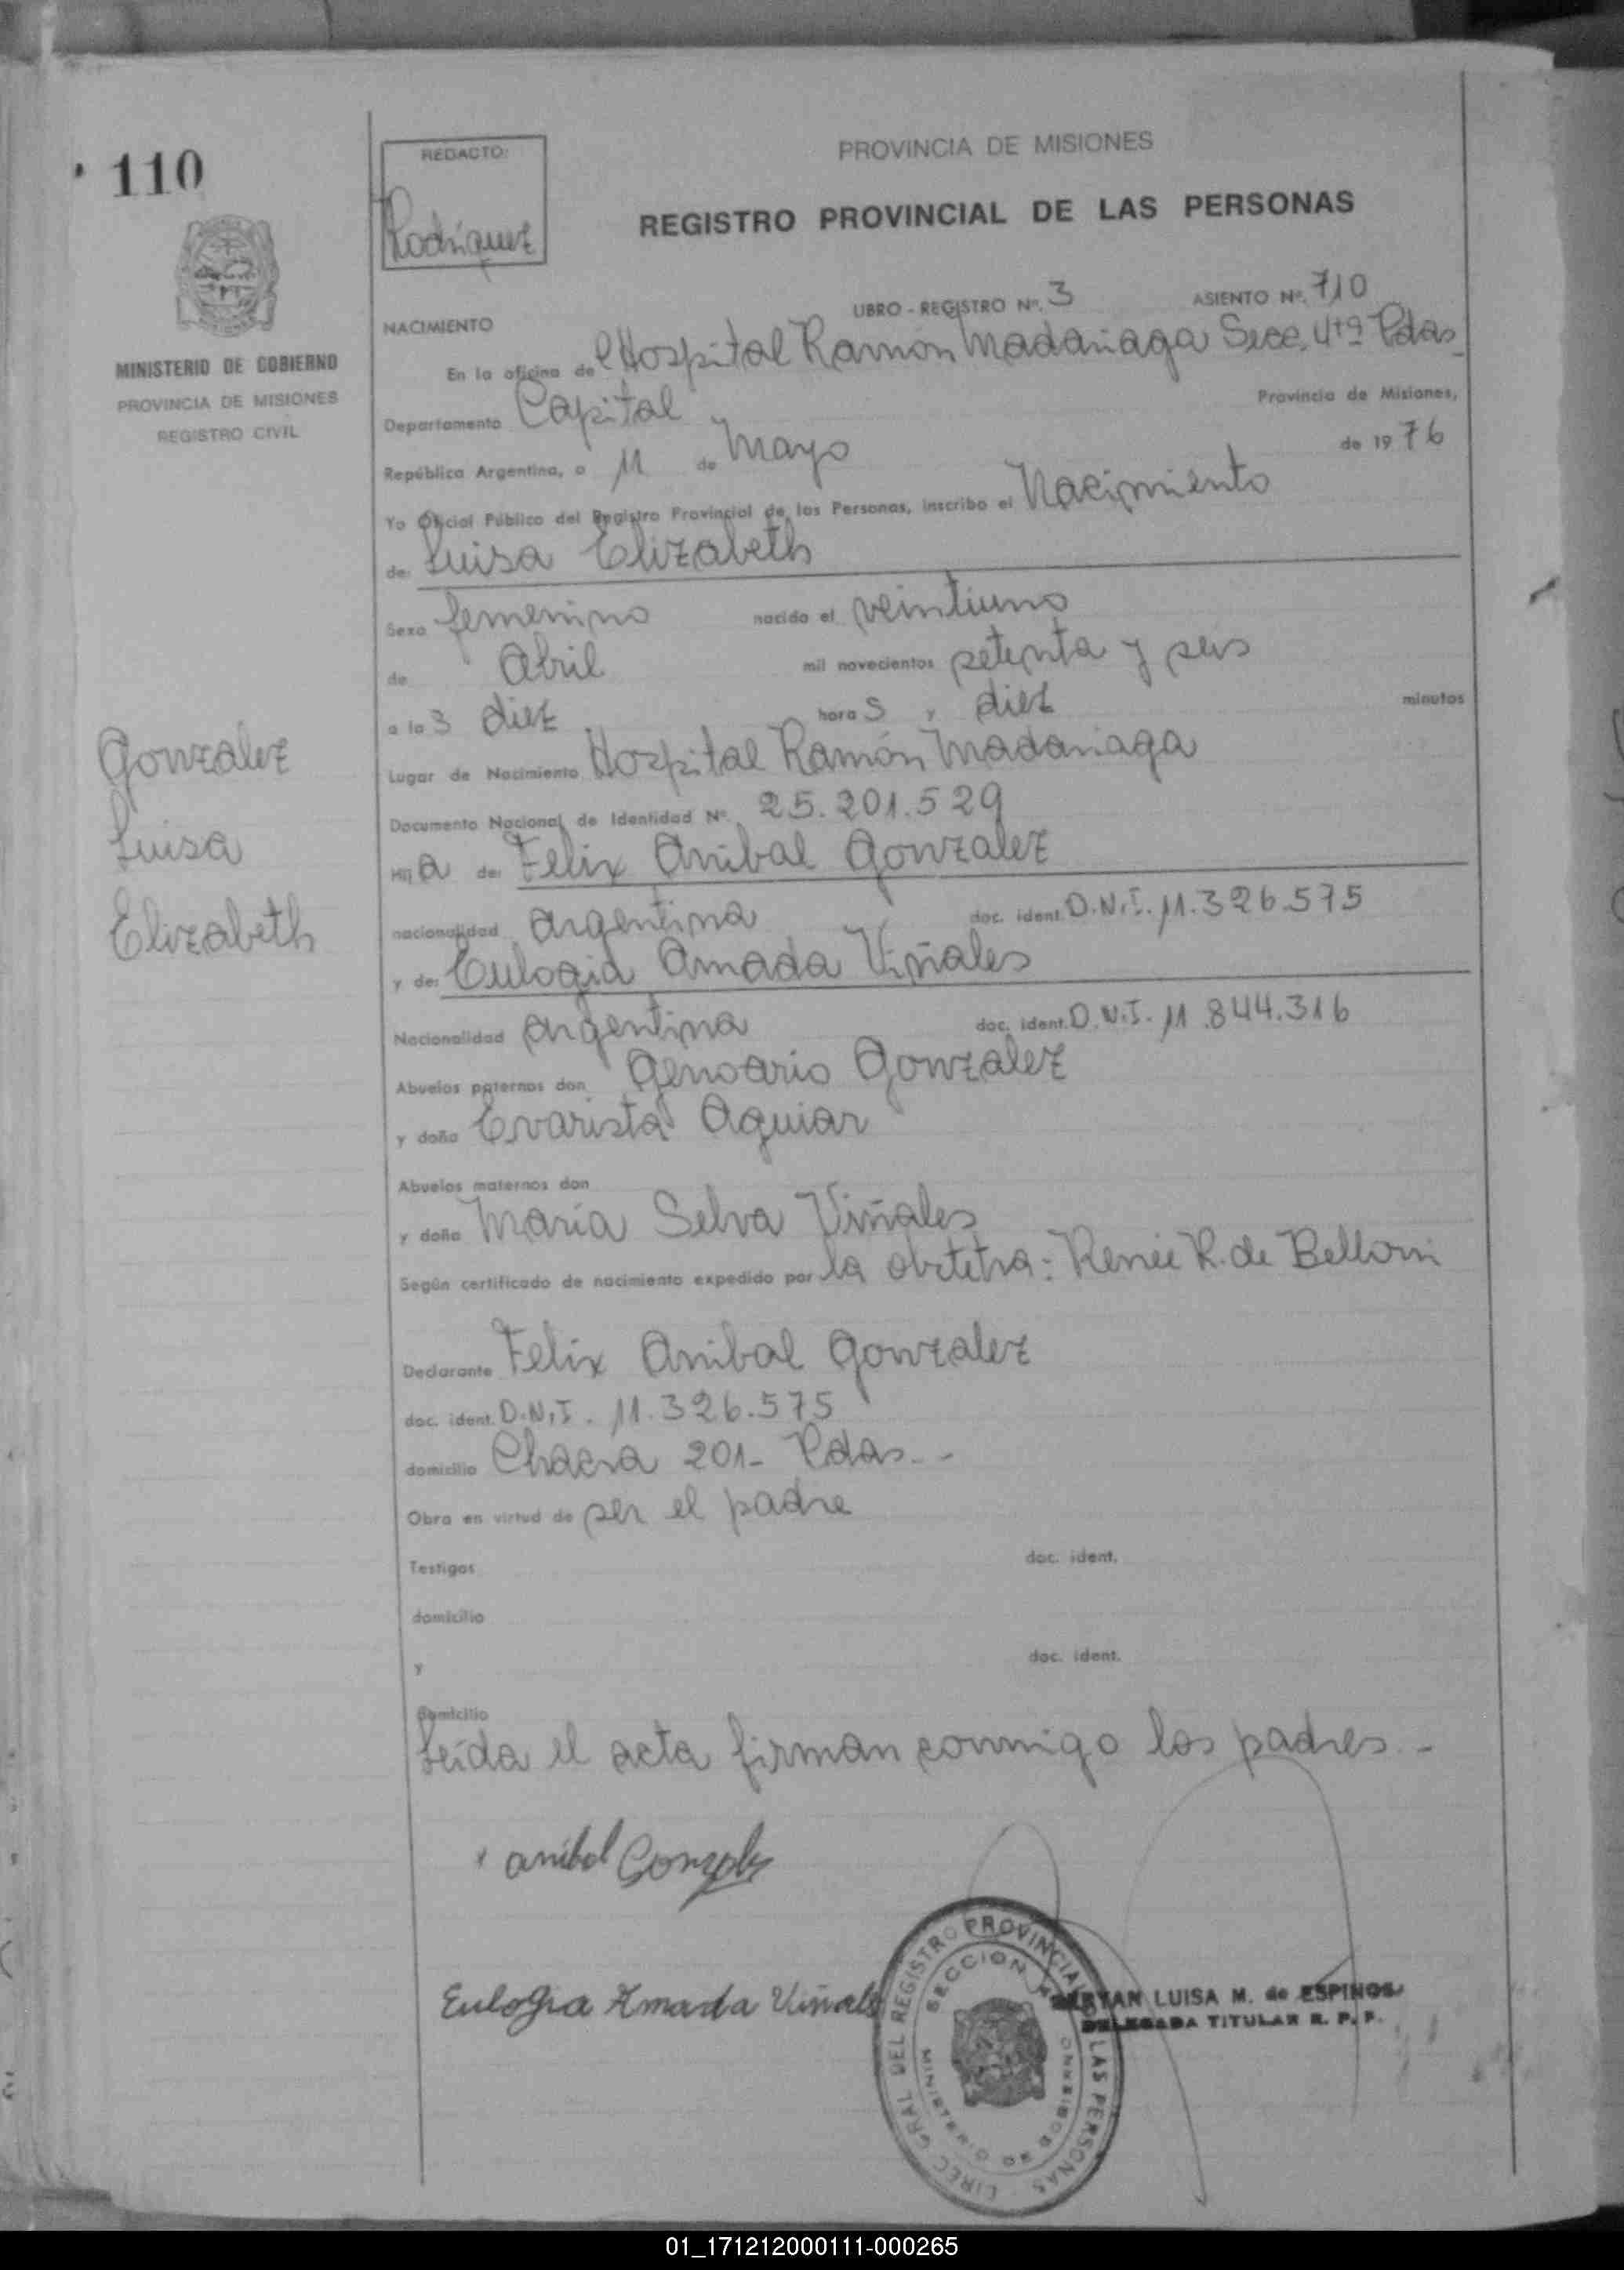 110
REDACTO:
Rodriguez
PROVINCIA DE MISIONES
REGISTRO PROVINCIAL DE LAS PERSONAS
MINISTERIO DE GOBIERNO
PROVINCIA DE MISIONES
REGISTRO CIVIL
LIBRO - REGISTRO Nº. 3 ASIENTO Nº. 710
NACIMIENTO
En la oficina del Hospital Ramon Madariaga Secc. 4ta Pdas
Departamento Capital Provincia de Misiones,
República Argentina, a 11 de Mayo de 1976
Yo Oficial Público del Registro Provincial de las Personas, inscribo el Nacimiento
de: Luisa Elizabeth
Sexo femenino nacido el veintiuno
de Abril mil novecientos setenta y seis
a las diez horas y diez minutos
Lugar de Nacimiento Hospital Ramón Madariaga
Documento Nacional de Identidad Nº. 25.201.529
Hija de: Felix Anibal Gonzalez
nacionalidad argentina doc. ident. D.N.I. 11.326.575
y de: Eulogia Amada Viñales
Nacionalidad argentina doc. ident. D.N.I. 11.844.316
Abuelos paternos don Genoario Gonzalez
y doña Evarista Aguiar
Abuelos maternos don
y doña María Selva Viñales
Según certificado de nacimiento expedido por la obstetra: Renée R. de Belloni
Declarante Felix Anibal Gonzalez
doc. ident. D.N.I. 11.326.575
domicilio Chacra 201- Pdas.-
Obra en virtud de ser el padre
Testigos doc. ident.
domicilio
y doc. ident.
domicilio
Leída el acta firman conmigo los padres.-
Gonzalez
Luisa
Elizabeth
anibal Gonzalez
Eulogia Amada Viñales
DIREC. GRAL DEL REGISTRO PROVINCIAL LAS PERSONAS
SECCION
MINISTERIO DE GOBIERNO
LUISA M. de ESPINOS
DELEGADA TITULAR R. P. P.
01_171212000111-000265